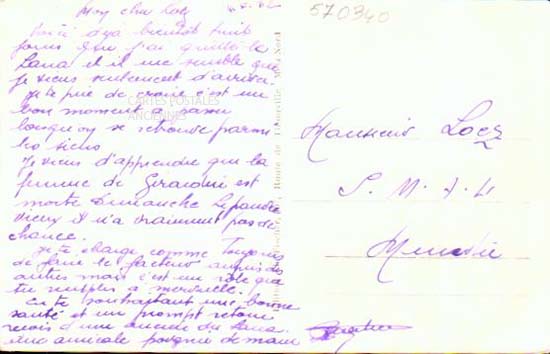 Mon cher Loez
Voici déja bientôt huit
jours que j'ai quitté le
Sana et il me semble que
je viens seulement d'arriver.
Je te prie de croire c'est un
bon moment a passer
lorsqu'on se retrouve parmi
les siens
Je viens d'apprendre que la
femme de Girardin est
morte Dimanche le pauvre
vieux il n'a vraiment pas de
chance.
Je te charge comme toujours
de faire le facteur auprès des
autres mais c'est un rôle que
tu remplis a merveille.
En te souhaitant une bonne
santé et un prompt retour
reçois d'un ancien du Sana
une amicale poignée de main
CARTES POSTALES
ANCIENNES
570340
Monsieur Loez
S. M. A. 4